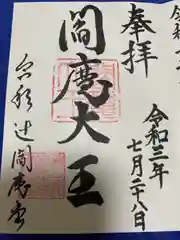 奉拝
令和三年
七月二十八日
閻魔大王
辻閻魔堂